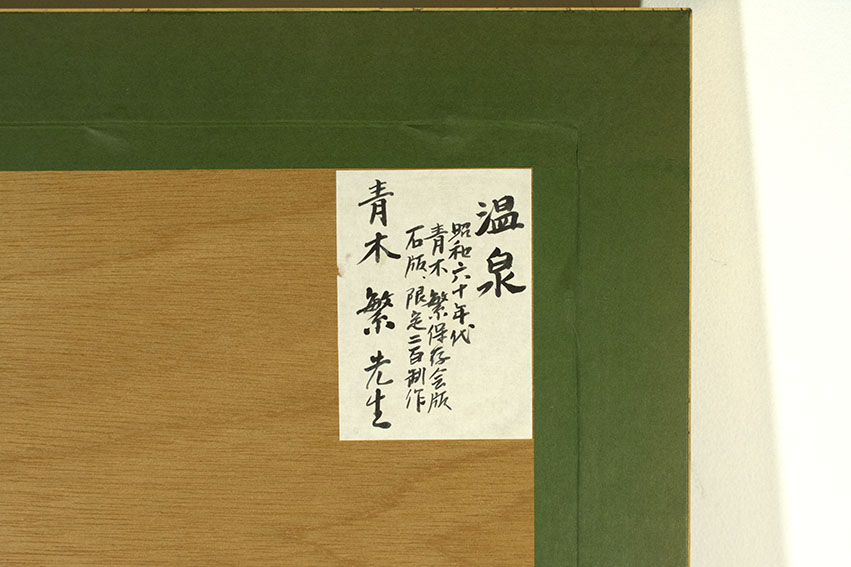 温泉
昭和六十年代
青木繁保存会版
石版、限定二百制作
青木繁先生